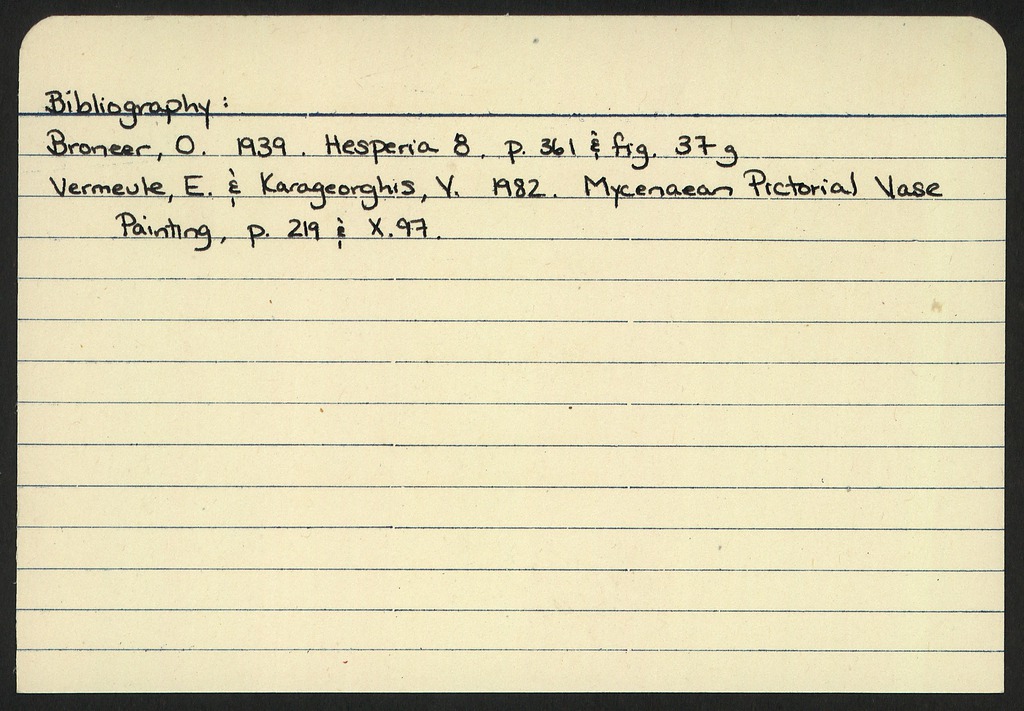 Bibliography:
Broneer, O. 1939. Hesperia 8. p. 361 & fig. 37g
Vermeule, E. & Karageorghis, V. 1982. Mycenaean Pictorial Vase
Painting, p. 219 & X.97.